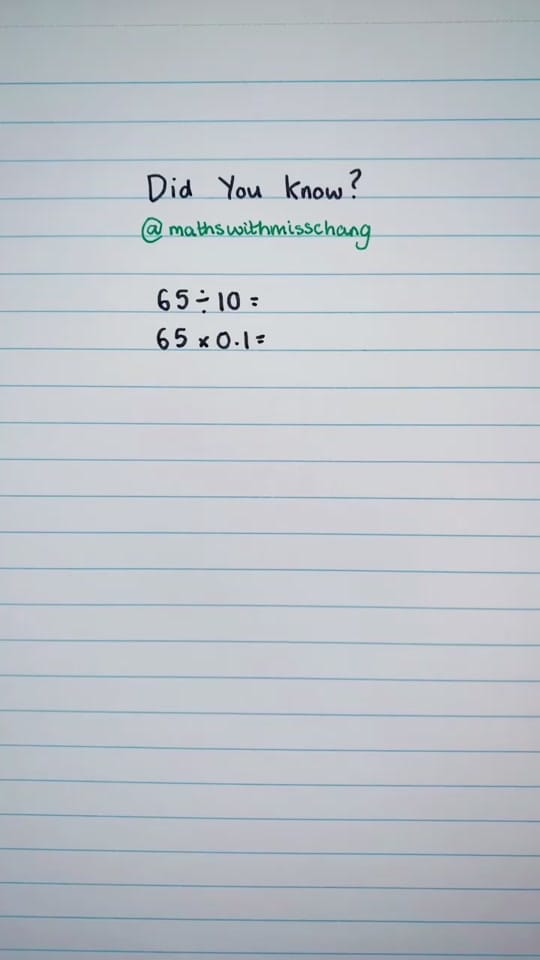 Did You Know?
@mathswithmisschang
65÷10=
65×0.1=